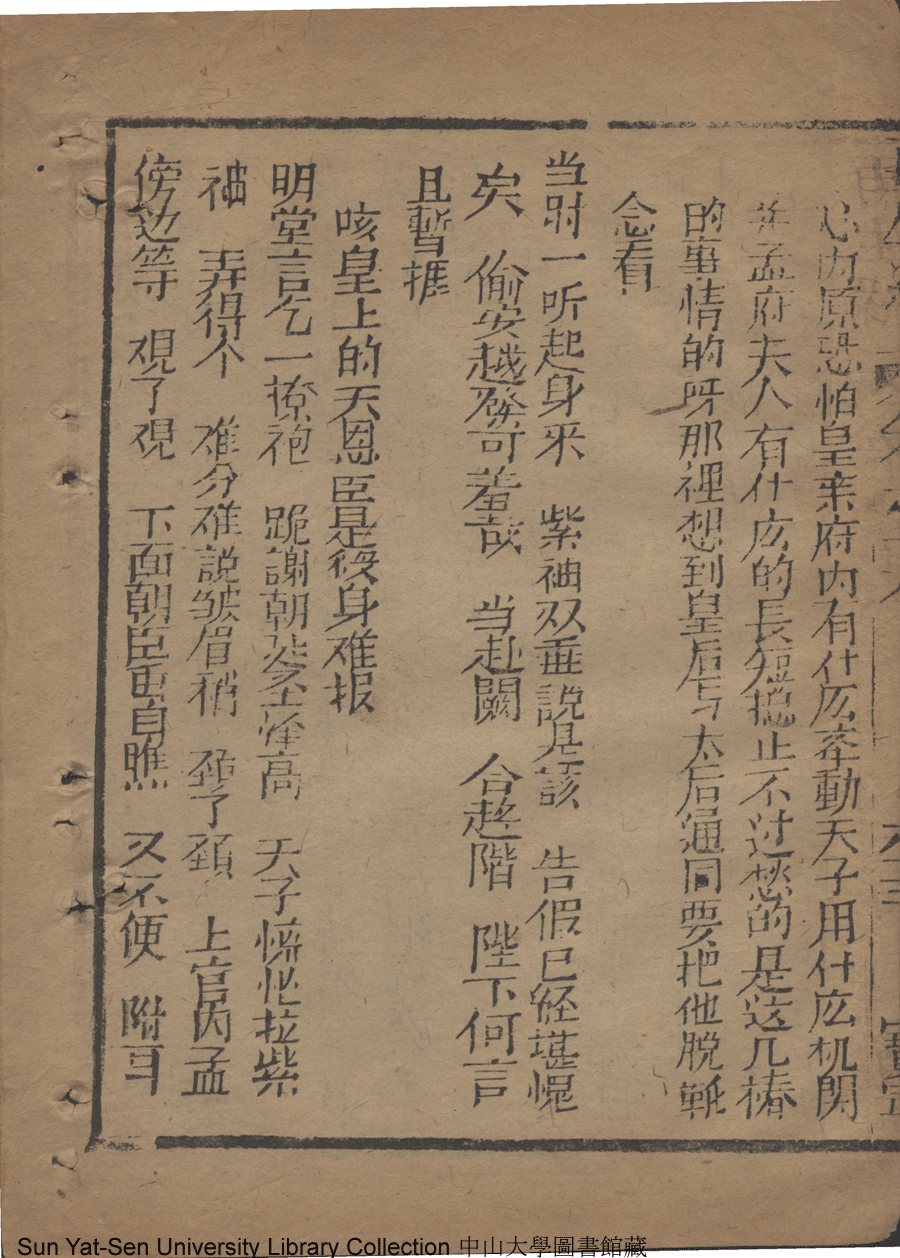 心内原恐怕皇亲府内有什庅牽動天子用什庅机関
并孟府夫人有什庅的長短搃止不过愁的是这几樁
的事情的呀那裡想到皇后与太后通同要把他脱靴
念看
当时一听起身来　紫袖双垂説是該　告假已经堪愧
矣　偷安越發可羞哉　当赴闕　合趋階　陛下何言
且暫捱
咳皇上的天恩臣是役身难报
明堂言乞一撩袍　跪謝朝　高　天子慌忙拉紫
袖　弄得个　难分难説皱眉稍　了頚　上官因孟
傍边等　覌了覌　下面朝臣更自瞧　又不便　附耳
Sun Yat-Sen University Library Collection 中山大學圖書館藏